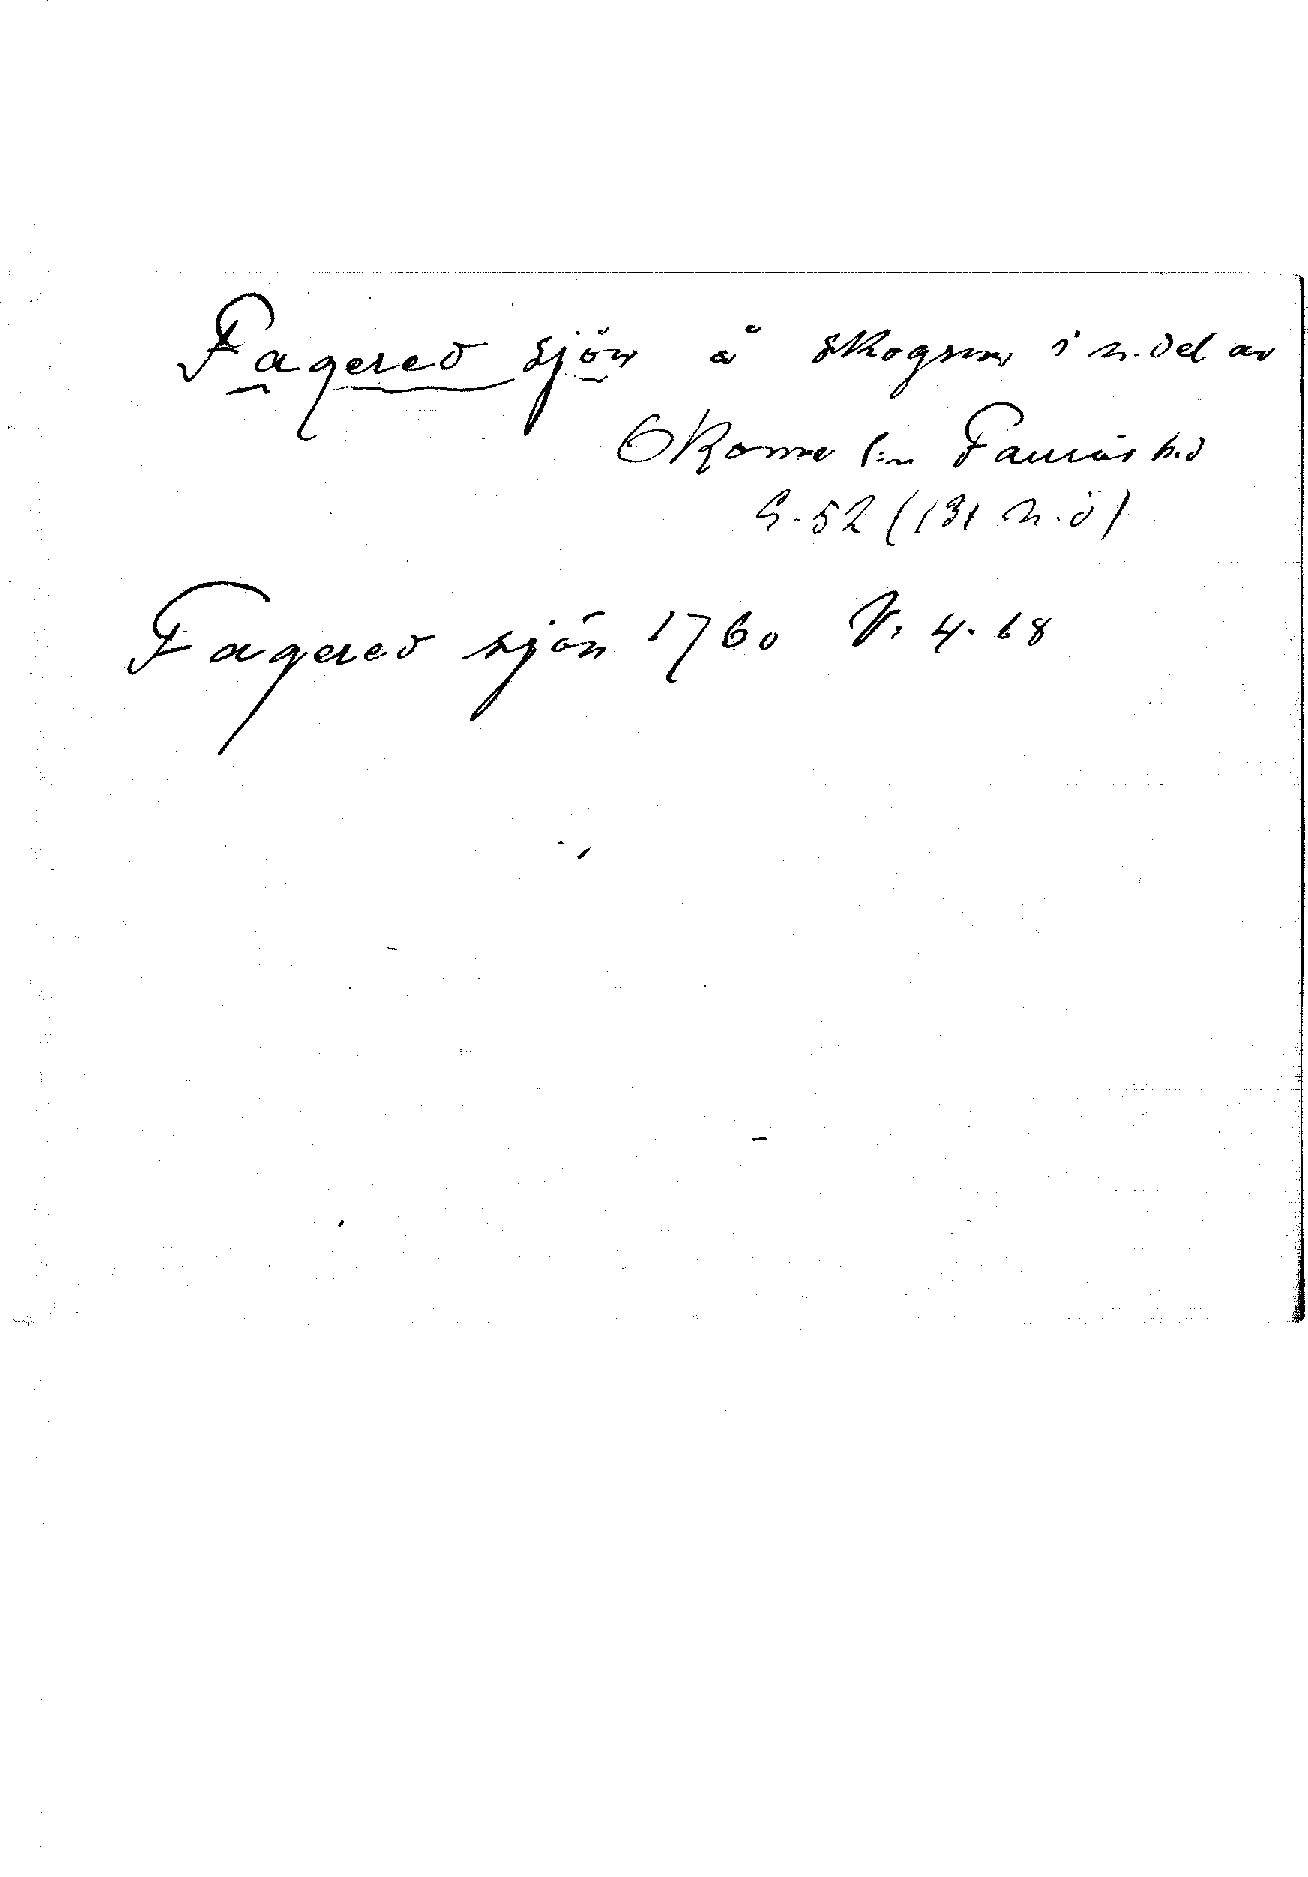 Fagered sjön å skogen i n. del av
Okome sn Faurås hd
G. 52 (131 n. ö)
Fagered sjön 1760 V. 4. 68